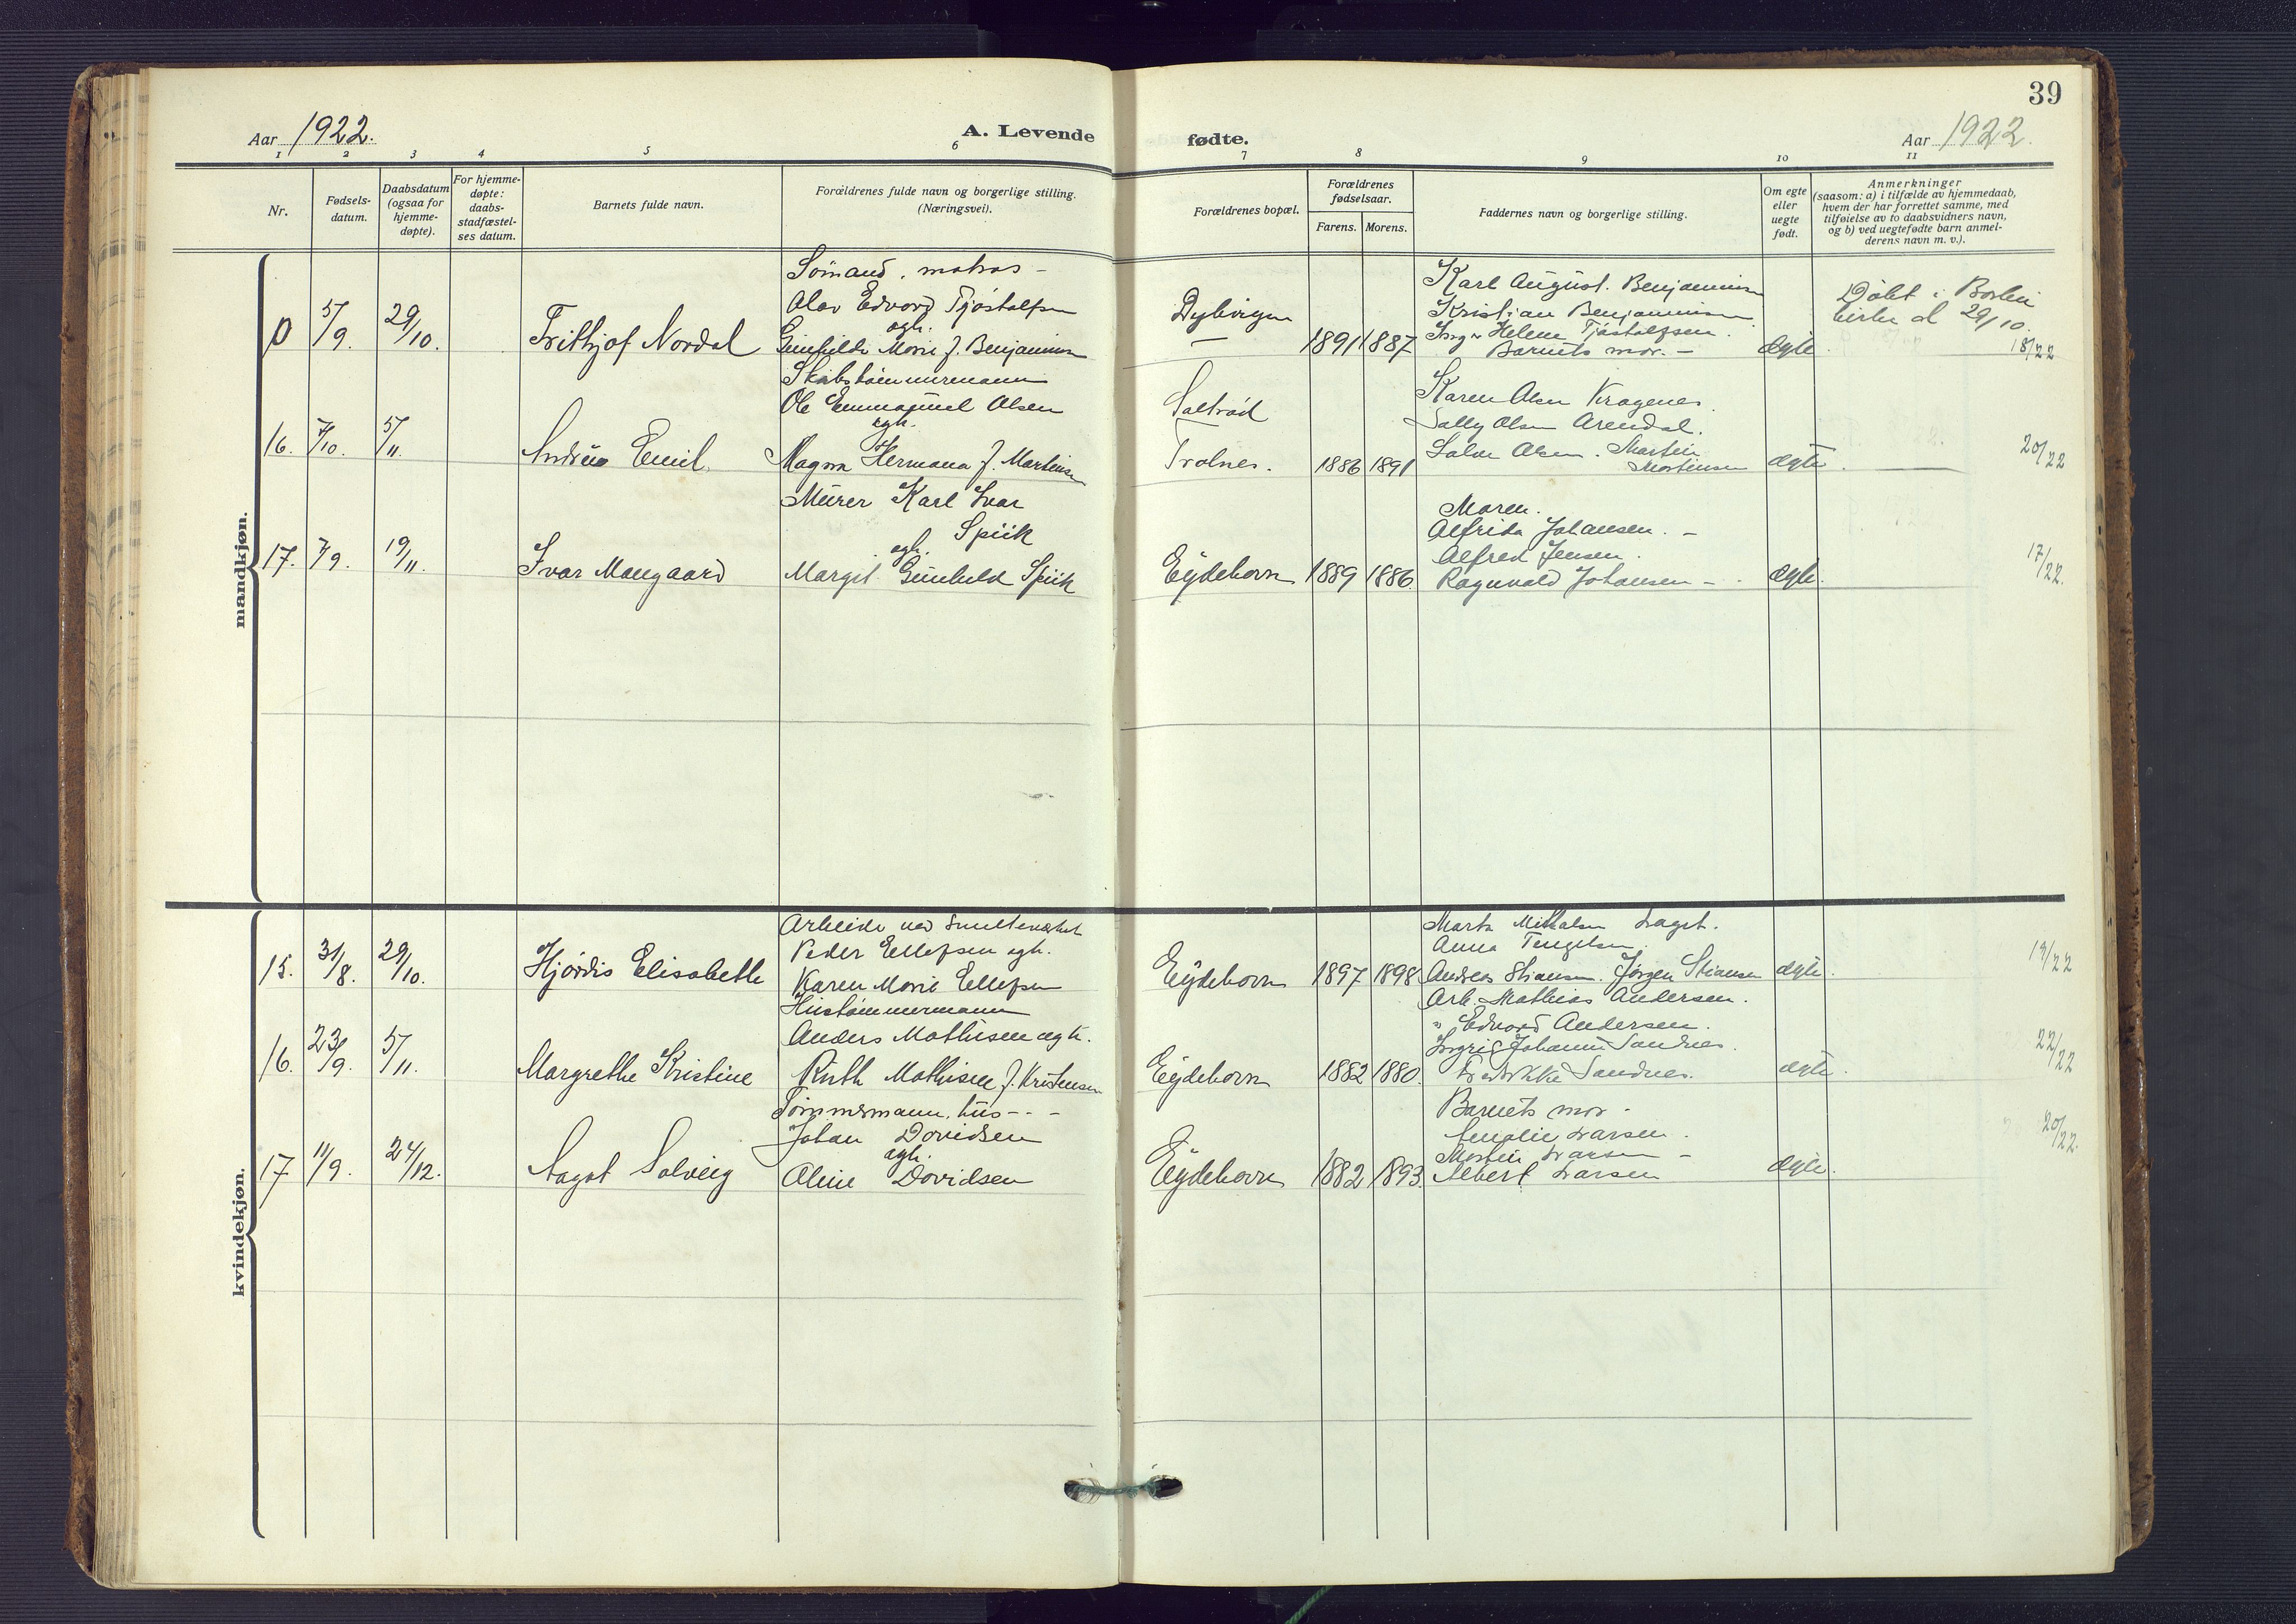 39
Aar 1922.
A. Levende fødte.
Aar 1922.
1 2 3 4 5 6 7 8 9 10 11
Nr.
Fødsels-
datum.
Daabsdatum
(ogsaa for
hjemme-
døpte).
For hjemme-
døpte:
daabs-
stadfæstel-
ses datum.
Barnets fulde navn.
Forældrenes fulde navn og borgerlige stilling.
(Næringsvei).
Forældrenes bopæl.
Forældrenes
fødselsaar.
Farens. Morens.
Faddernes navn og borgerlige stilling.
Om egte
eller
uegte
født.
Anmerkninger
(saasom: a) i tilfælde av hjemmedaab,
hvem der har forrettet samme, med
tilføielse av to daabsvidners navn,
og b) ved uegtefødte barn anmel-
derens navn m. v.).
mandkjøn.
0 5/9. 29/10. Frithjof Nordal
Sømand, matros -
Olav Edvard Tjøstolfsen
egh.
Gunhilde Marie f. Benjaminsen
Dybvigen
1891 1887
Karl August Benjaminsen
Kristian Benjaminsen
Inga Helene Tjøstolfsen.
Barnets mor. -
ægte
Døbt i
kirke d 29/10.
18/22
16. 7/10. 5/11. Emil.
Skibstømmermann
Ole Emmanuel Olsen
egh.
Magna Hermana f. Martinsen
Saltrød
1886 1891
Karen Olsen Kragenes.
Sally Olsen Arendal.
Olsen. Martin
Mortensen
ægte.
20/22
17. 7/9. 19/11. Ivar Maugaard
Murer Karl Ivar
Spiik
egh.
Margit Gunhild Spiik
Eydehavn 1889 1886.
Moren.
Alfrida Johansen. -
Alfred Jensen.
Ragnvald Johansen -.
ægte.
17/22.
kvindekjøn.
15. 31/8. 29/10. Hjørdis Elisabeth
Arbeider ved Smelteverket
Peder Ellefsen egh.
Karen Marie Ellefsen
Eydehavn 1897 1898
Marta
Anna Tengelsen.
Andreas Stiansen. Jørgen Stiansen
ægte.
19/22
16. 23/9. 5/11. Margrethe Kristine
Hustømmermann
Anders Mathisen egh.
Ruth Mathisen f. Kristensen
Eydehavn 1882 1880.
Arb. Mathias Andersen.
" Edvard Andersen.
Ingrid Johanne Sandnes.
Fredrikke Sandnes.
ægte.
22/22
17 11/9. 24/12. Aagot Solveig
Tømmermann, hus- - -
Johan Davidsen
egh.
Aline Davidsen
Eydehavn 1882 1893.
Barnets mor -
Amalie Larsen.
Larsen -
Albert Larsen
ægte.
20/22.